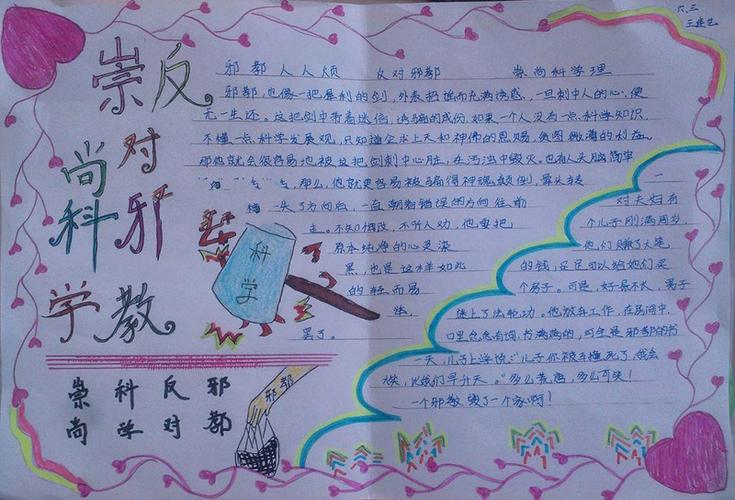 六、三
反对邪教
崇尚科学
邪都人人烦 反对邪都 崇尚科学理
邪都,也像一把犀利的剑,外表招谣而充满诱惑,一旦刺中人的心,便
无一生还。这把剑中带着迷信、诱骗的成份,如果一个人没有一点科学知识,
不懂一点科学发展观,只知道企求上天和神佛的恩赐,贪图微薄的利益,
那他就会很容易地被这把剑刺中心脏,在污浊中毁灭。也有人头脑简单
那么,他就更容易被骗得神魂颠倒,晕头转
一头了方向后,一直朝着错误的方向往前
走。不知悔改,不听人劝,他要把
原本纯净的心灵染
黑,也是这样如此
的轻而易
举,
罢了。
科学
一
对夫妇有
个儿子刚满周岁,
他们赚了大笔
的钱,足足可以给她们买
个房子。可是,好景不长,妻子
迷上了法轮功。他放弃工作,在房间中,
口里念念有词,书满满的,可全是邪都的书
一天,儿子上学说:“儿子你被车撞死了,我会
让我们早升天。”多么荒唐,多么可笑!
一个邪教毁了一个家啊!
崇科反邪
尚学对都
邪都